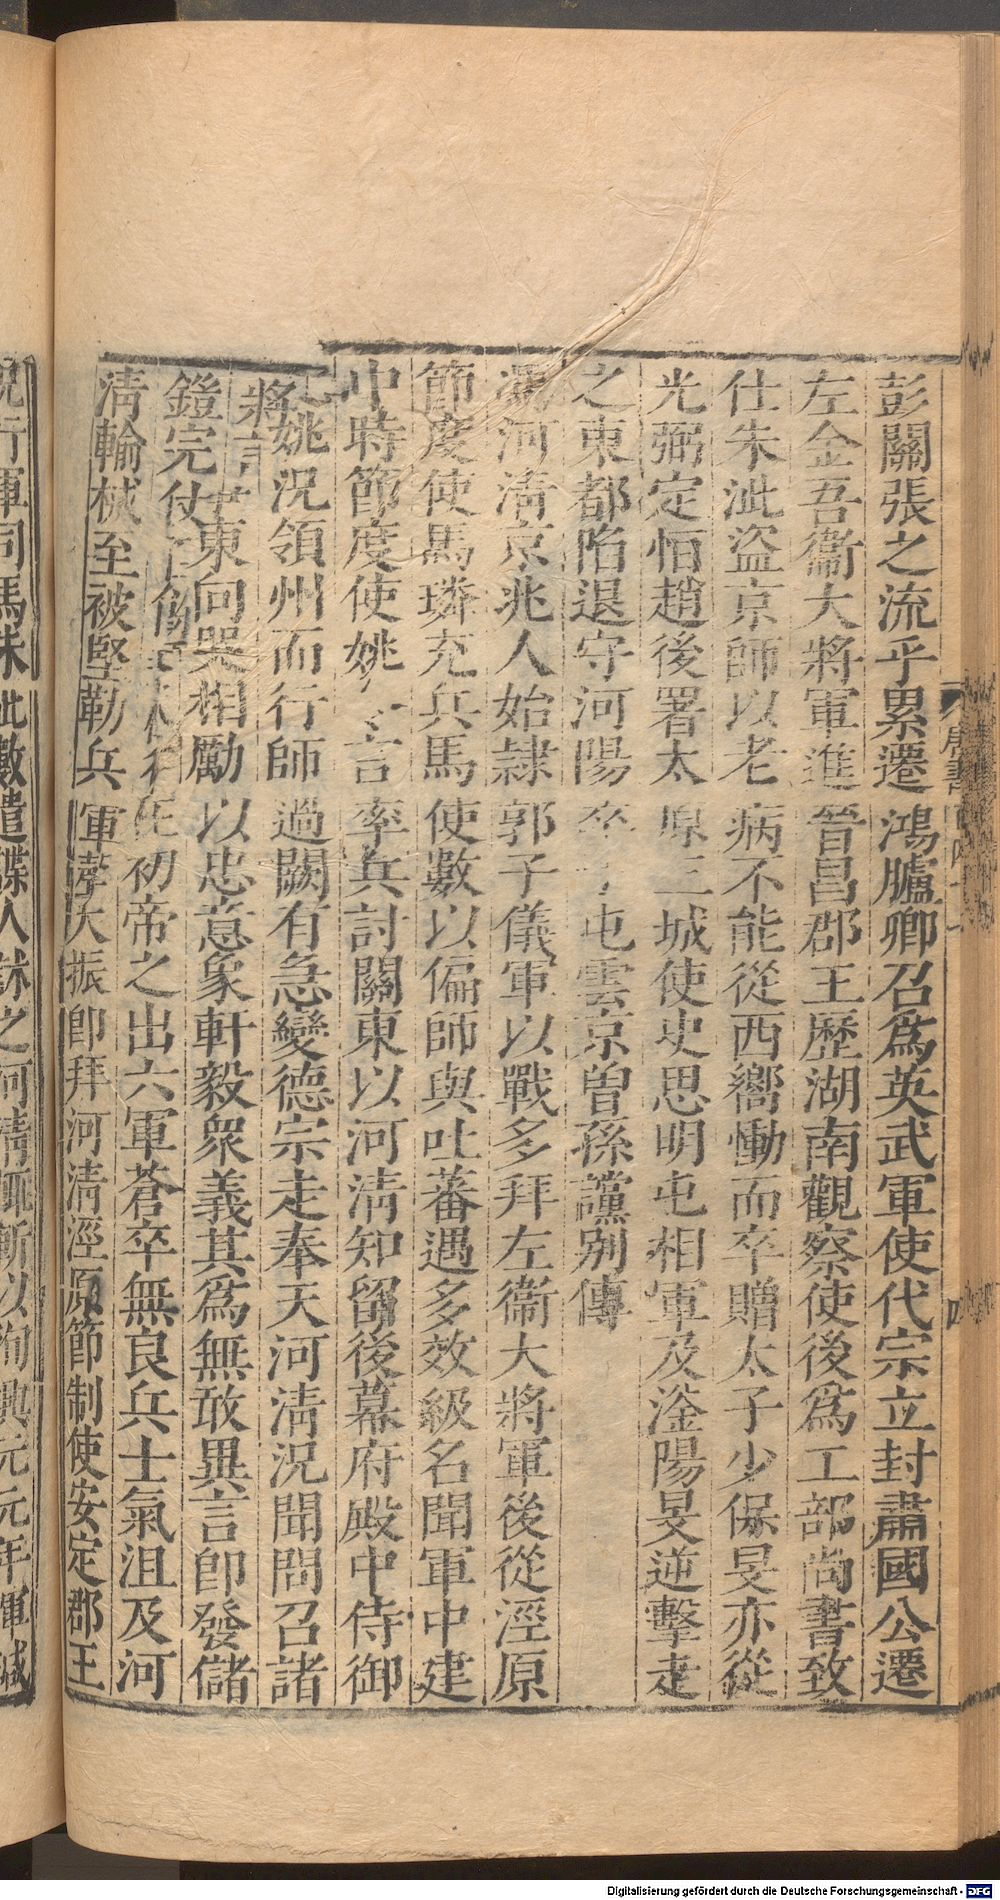 彭關張之流乎累遷鴻臚卿召爲英武軍使代宗立封肅國公遷
左金吾衞大將軍進晉昌郡王歷湖南觀察使後爲工部尚書致
仕朱泚盜京師以老病不能從西嚮慟而卒贈太子少保旻亦從
光弼定恒趙後署太原三城使史思明屯相軍及滏陽旻逆擊走
之東都陷退守河陽卒 屯雲京曾孫讜別傳
馮河清京兆人始隸郭子儀軍以戰多拜左衞大將軍後從涇原
節度使馬璘充兵馬使數以偏師與吐蕃遇多效級名聞軍中建
中時節度使姚 言率兵討關東以河淸知留後幕府殿中侍御
姚況領州而行師過闕有急變德宗走奉天河淸況聞問召諸
將 東向哭相勵以忠意象軒毅衆義其爲無敢異言卽發儲
鎧完仗 初帝之出六軍蒼卒無良兵士氣沮及河
淸輸械至被堅勒兵軍聲大振卽拜河淸涇原節制使安定郡王
況行軍司馬朱泚數遣諜人訹之河淸輒斬以徇興元元年渾瑊
唐書
四
Digitalisierung gefördert durch die Deutsche Forschungsgemeinschaft - DFG